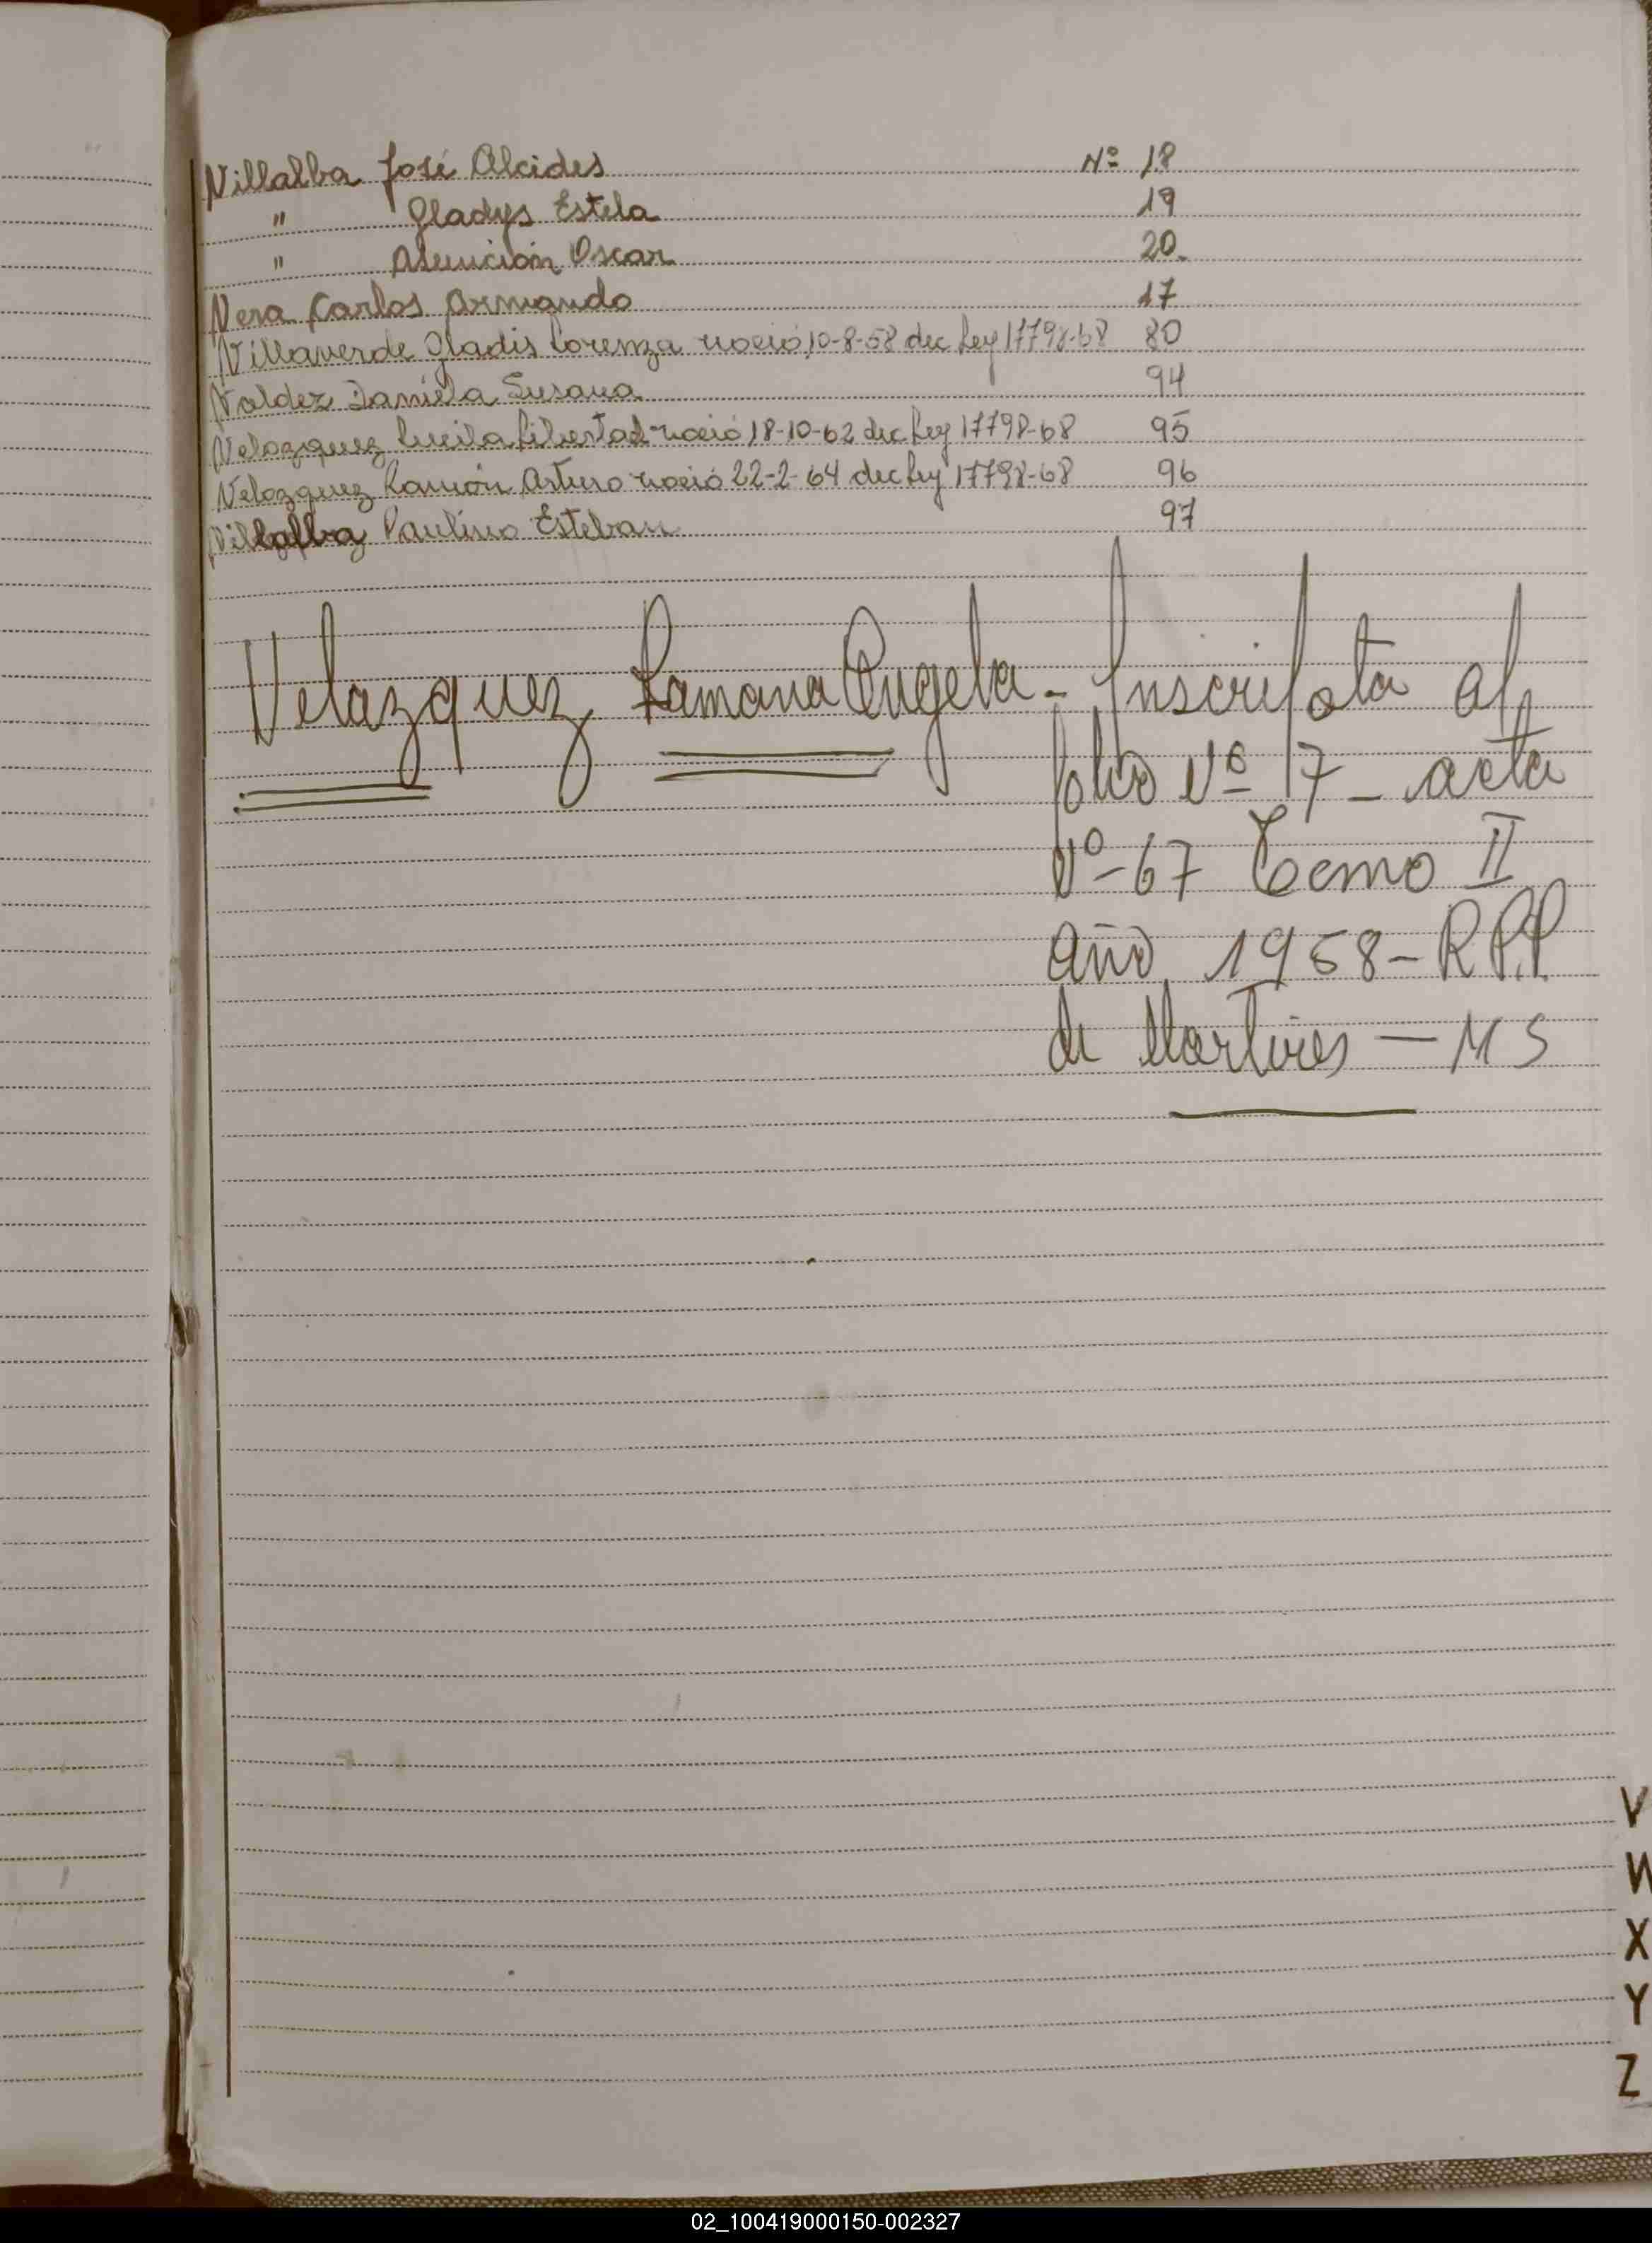 Villalba José Alcides Nº 18
" Gladys Estela 19
" Asunción Oscar 20.
Vera Carlos Armando 17
Villaverde Gladis Lorenza nació 10-8-58 dec Ley 17798-68 80
Valdez Daniela Susana 94
Velazquez Lucila Libertad nació 18-10-62 dec Ley 17798-68 95
Velazquez Ramón Arturo nació 22-2-64 dec Ley 17798-68 96
Villalba Paulino Esteban 97
Velazquez Ramona Angela - Inscripta al
folio Nº 17 - acta
Nº - 67 Tomo II
año 1968 - R.P.P.
de Martires — MS
V
W
X
Y
Z
02_100419000150-002327